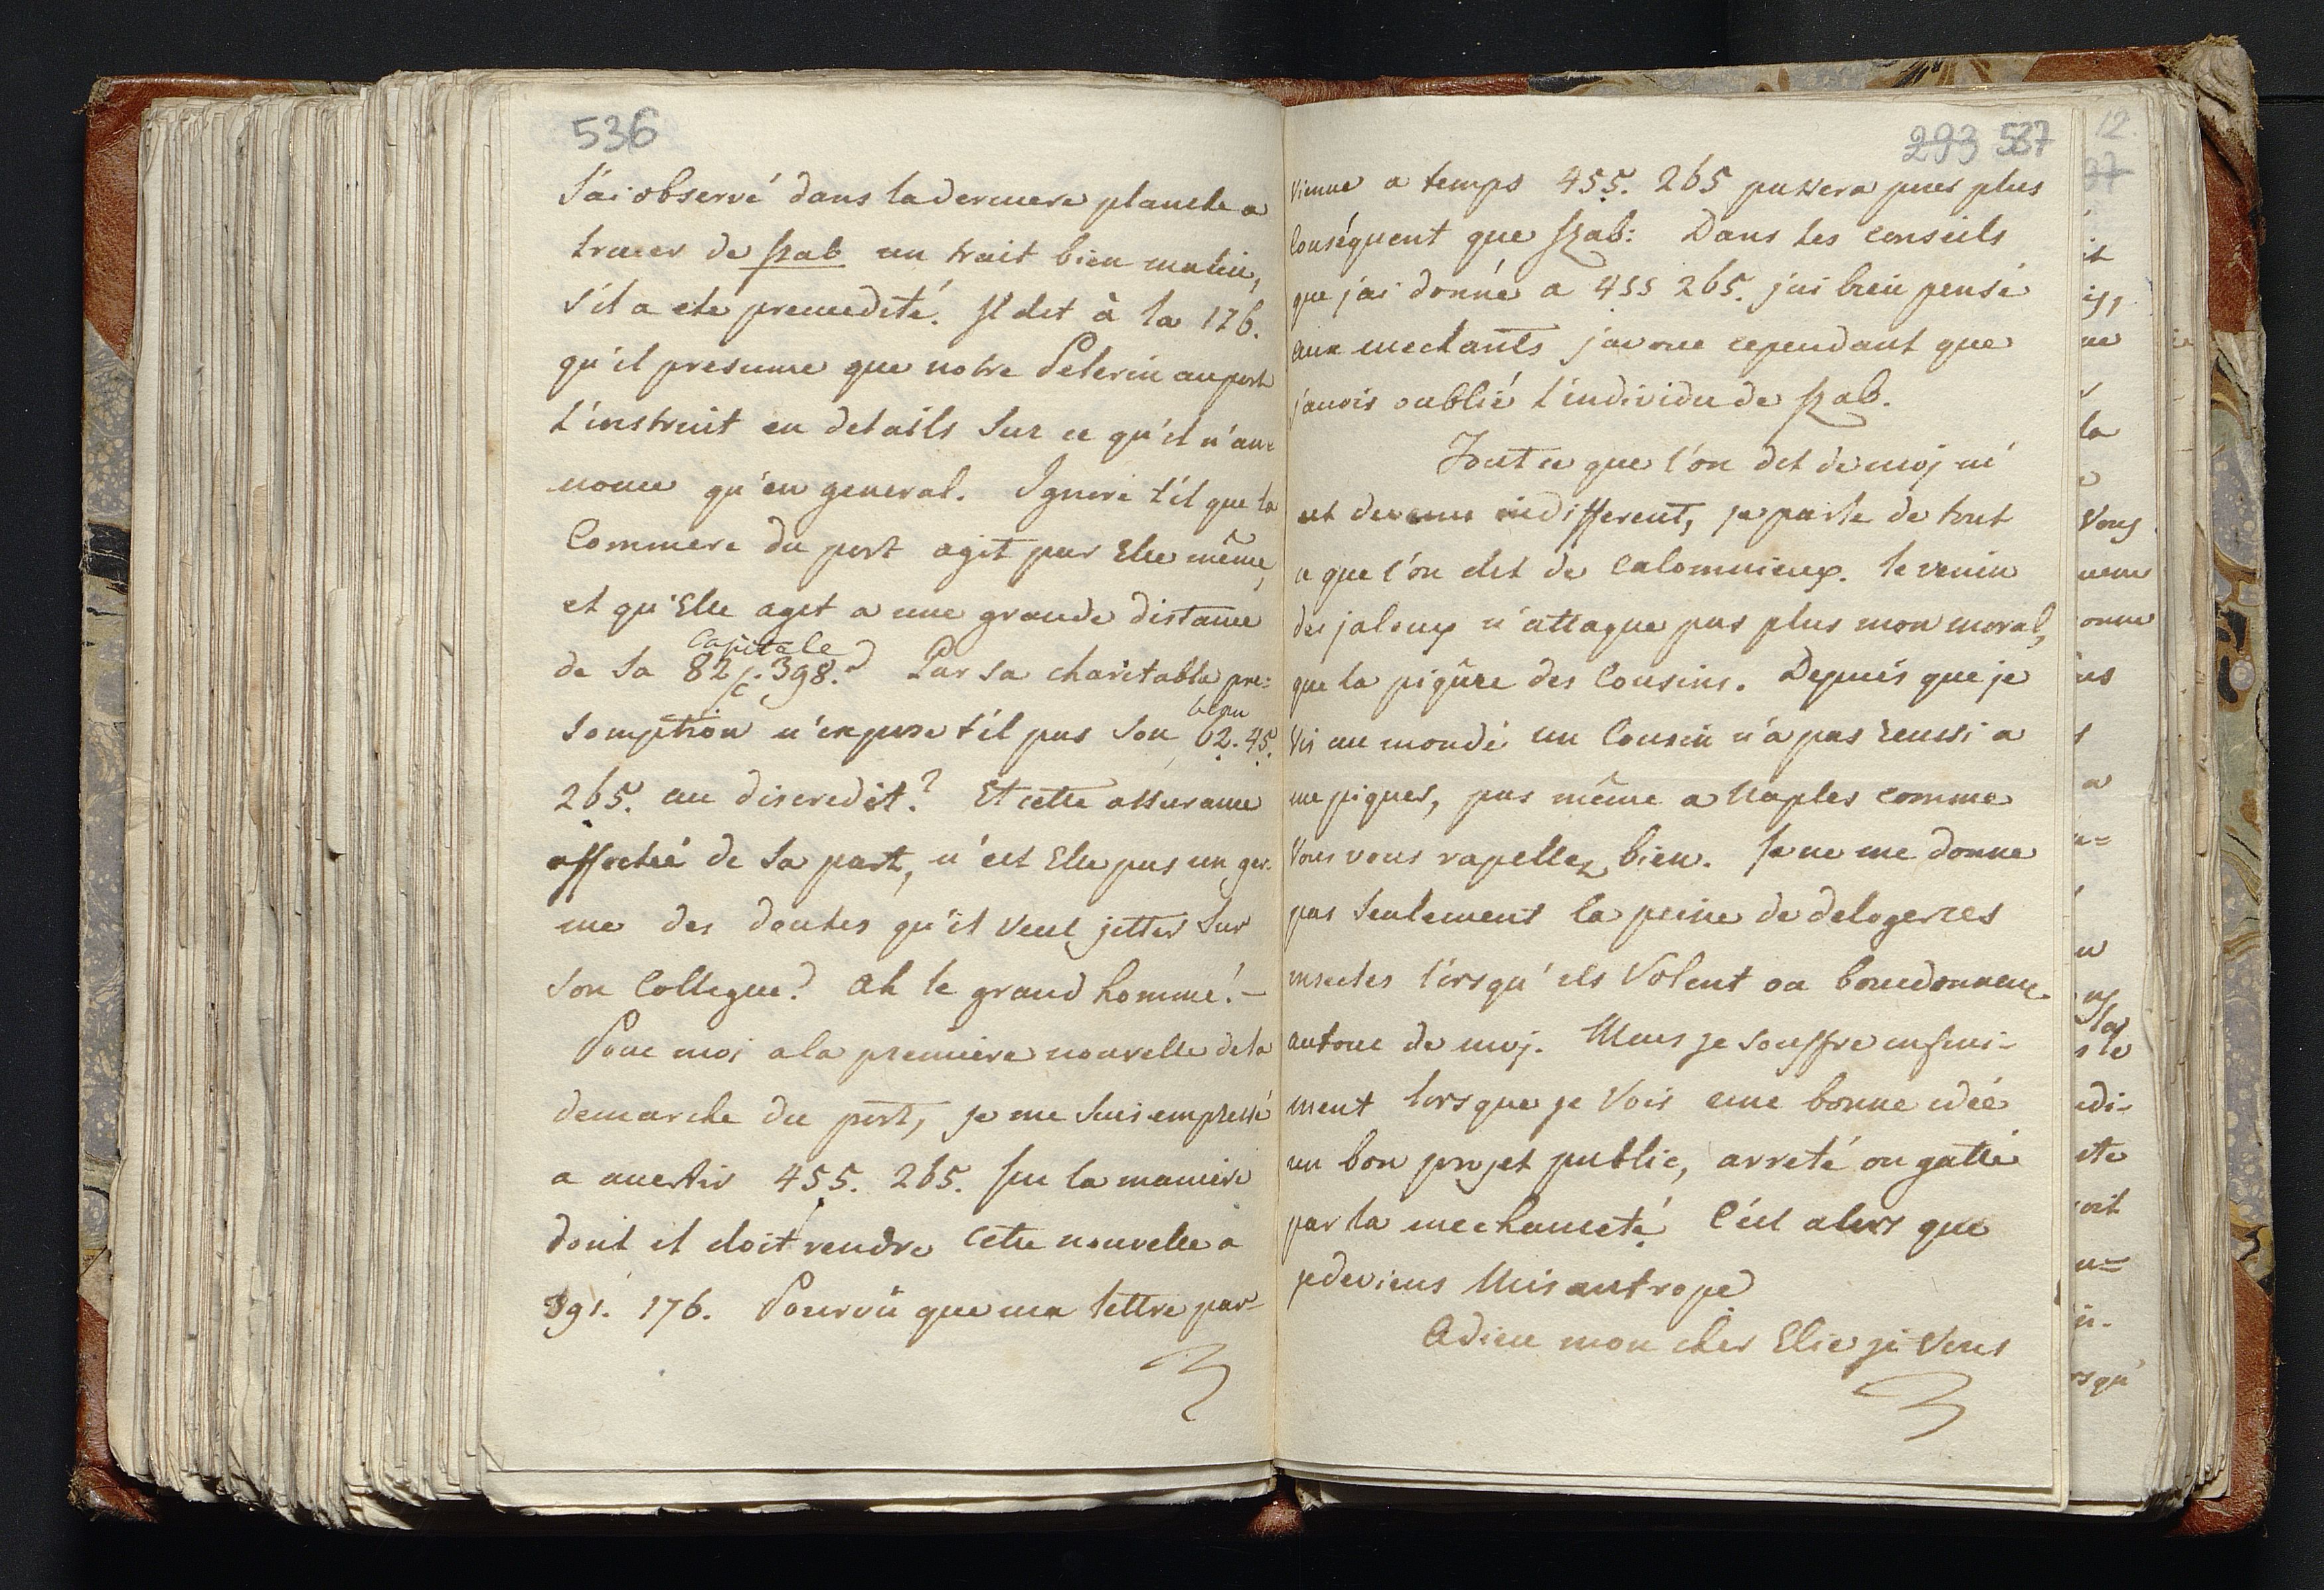 536
J'ai observé dans la derniere planche a
tracer de Szab un trait bien malin,
s'il a eté premedité. Il dit à la 176.
qu'il presume que notre Pelerin au port
l'instruit en details sur ce qu'il n'an=
nonce qu'en general. Ignore t'il que la
Commere du port agit par Elle même,
et qu'Elle agit a une grande distance
Capitale
de sa 82/c. 398.? Par sa charitable pre=
beau
somption n'expose t'il pas son 62. 45.
265. au discredit? Et cette assurance
affectée de sa part, n'est Elle pas un ger-
me des doutes qu'il veut jetter sur
son Collegue? Ah le grand homme! –
Pour moi a la premiere nouvelle de la
demarche du port, je me suis empressé
a avertir 455. 265. sur la maniere
dont il doit rendre cette nouvelle a
391. 176. Pourvû que ma lettre par-
293 537
vienne a temps 455. 265 passera pour plus
conséquent que Szab: Dans les conseils
que j'ai donné a 455 265. j'ai bien pensé
aux mechants j'avoue cependant que
j'avois oublié l'individu de Szab.
Tout ce que l'on dit de moj m'é
est devenu indifferent, je parle de tout
ce que l'on dit de Calomnieux. le venin
des jaloux n'attaque pas plus mon moral,
que la piqûre des Cousins. Depuis que je
vis au monde un Cousin n'a pas reussi a
me piquer, pas même a Naples comme
vous vous rapellez bien. Je ne me donne
pas seulement la peine de deloger ces
insectes lorsqu'ils volent ou bourdonnent
autour de moj. Mais je souffre infini-
ment lorsque je vois une bonne idée
un bon projet public, arreté ou gatté
par la mechanceté. C'est alors que
je deviens Misantrope
Adieu mon cher Elie je vous
12.
37
it
la
Vous
onne
a
edi-
ete
oit
rsqu'